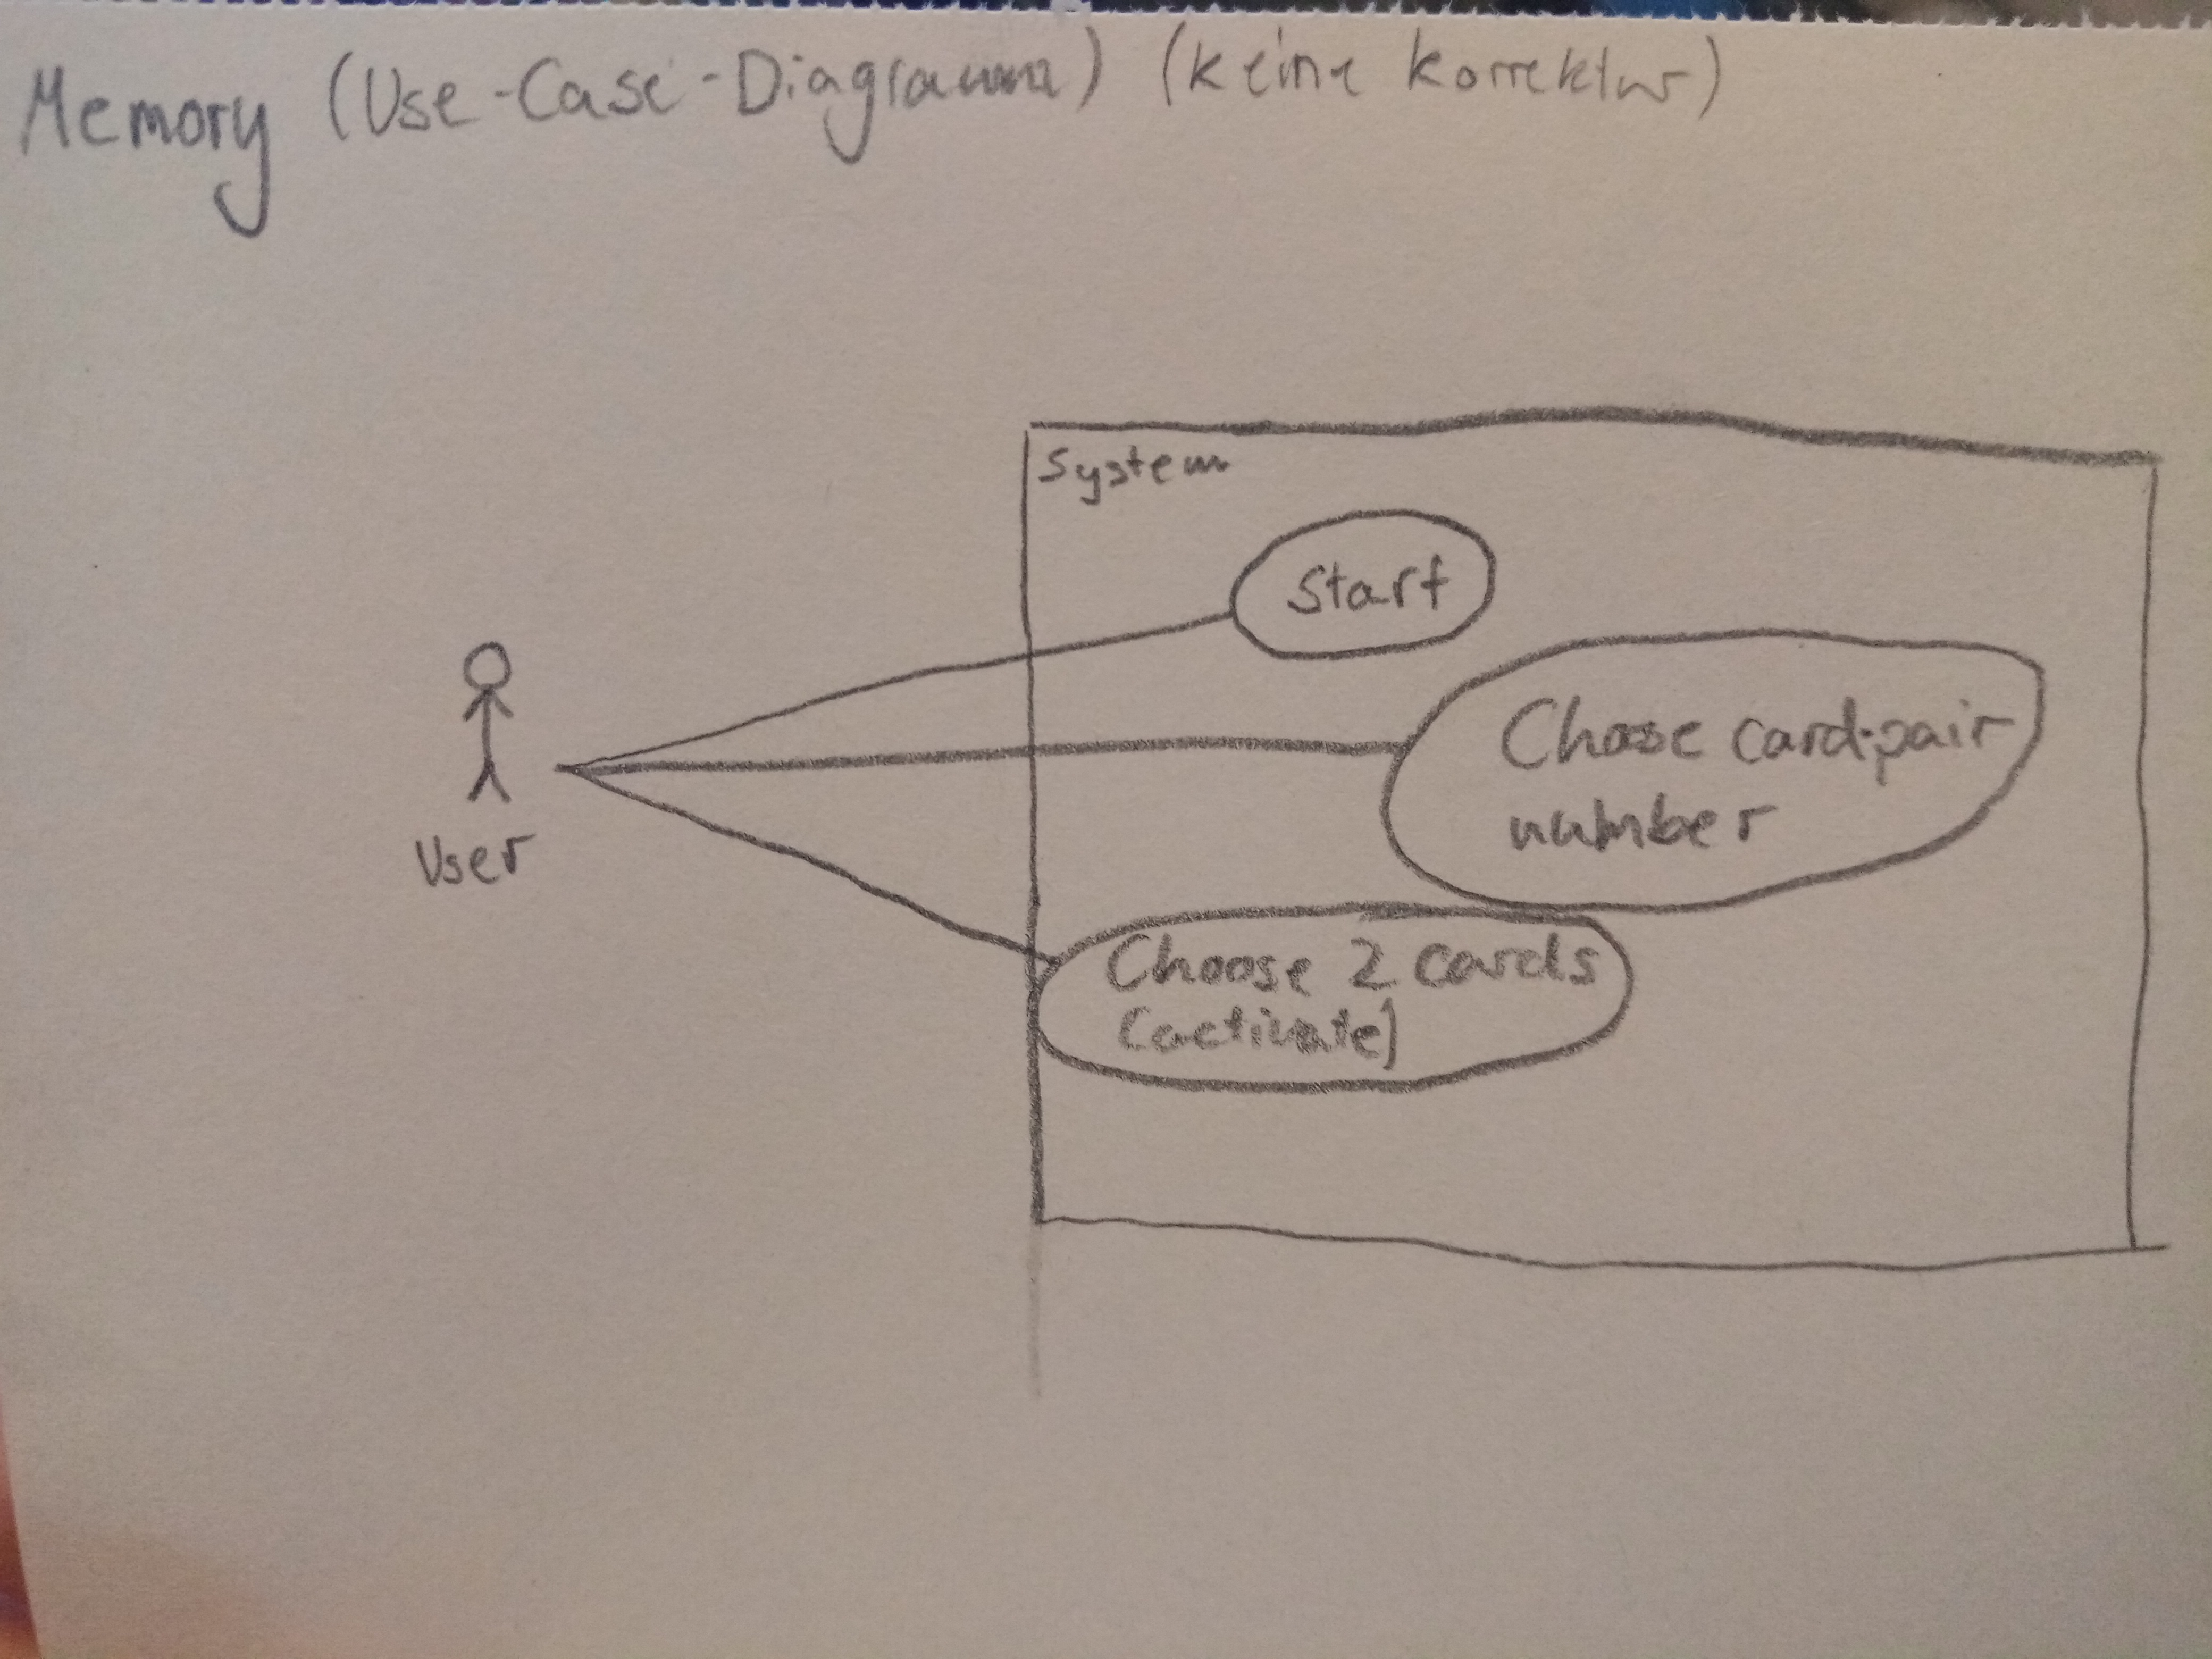 Memory (Use-Case-Diagramm) (keine korrektur)
System
Start
User
Chose card-pair
number
Choose 2 cards
(activate)